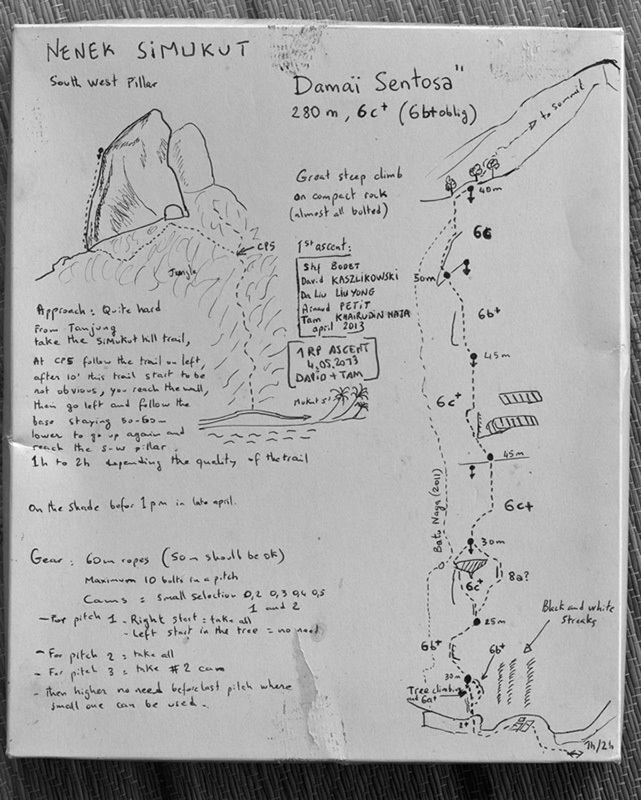 NENEK SiMUKUT
South West Pillar
"Damaï Sentosa"
280 m, 6c+ (6b+ oblig)
Great steep climb
on compact rock
(almost all bolted)
1st ascent:
Stef BODET
David KASZLIKOWSKI
Da Liu LIU YONG
Arnaud PETIT
Tam KHAIRUDIN HAJA
april 2013
1 RP ASCENT
4.05.2013
DAVID + TAM
CPS
Jungle
Mukut
Approach: Quite hard
From Tanjung
take the Simukut hill trail,
At CPS follow the trail on left,
after 10' this trail start to be
not obvious, you reach the wall,
then go left and follow the
base staying 50-60m
lower to go up again and
reach the S-W pillar.
1h to 2h depending the quality of the trail
On the shade befor 1 pm in late april.
Gear: 60m ropes (50m should be ok)
Maximum 10 bolts in a pitch
Cams = small selection 0,2 0,3 0,4 0,5
1 and 2
- For pitch 1 - Right start = take all
- Left start in the tree = no need
- For pitch 2 = take all
- For pitch 3 = take #2 cam
- Then higher no need before last pitch where
small one can be used.
to summit
40m
50m
6b+
45m
6c+
45m
6c+
Batu Naga (2011)
30m
6c+
8a?
25m
Black and white
streaks
6b+
6b+
30m
Tree climbing
and 6a+
1h/2h